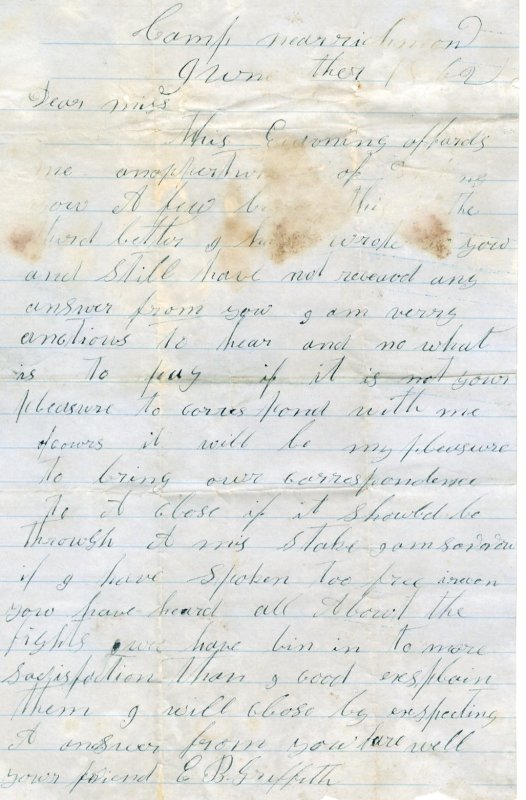 Camp nearrichmon
June ther 62
Dear miss
this Evaning affords
me anoppertun of
yow A few
therd letter g have wrote yow
and still have not receaved any
answer from yow g am verry
anctiows to hear and no what
is to pay if it is not yowr
pleasure to corris pond with me
it will be my pleasure
to bring owr correspondence
To A close if it showld be
throwgh A mis stake g am
if g have spoken too free
yow have heard all Abowt the
fights we have bin in to more
satisfaction than g cood exsplain
them g will close by exspecting
A answer from yow fare well
yowr friend E B. Griffeth